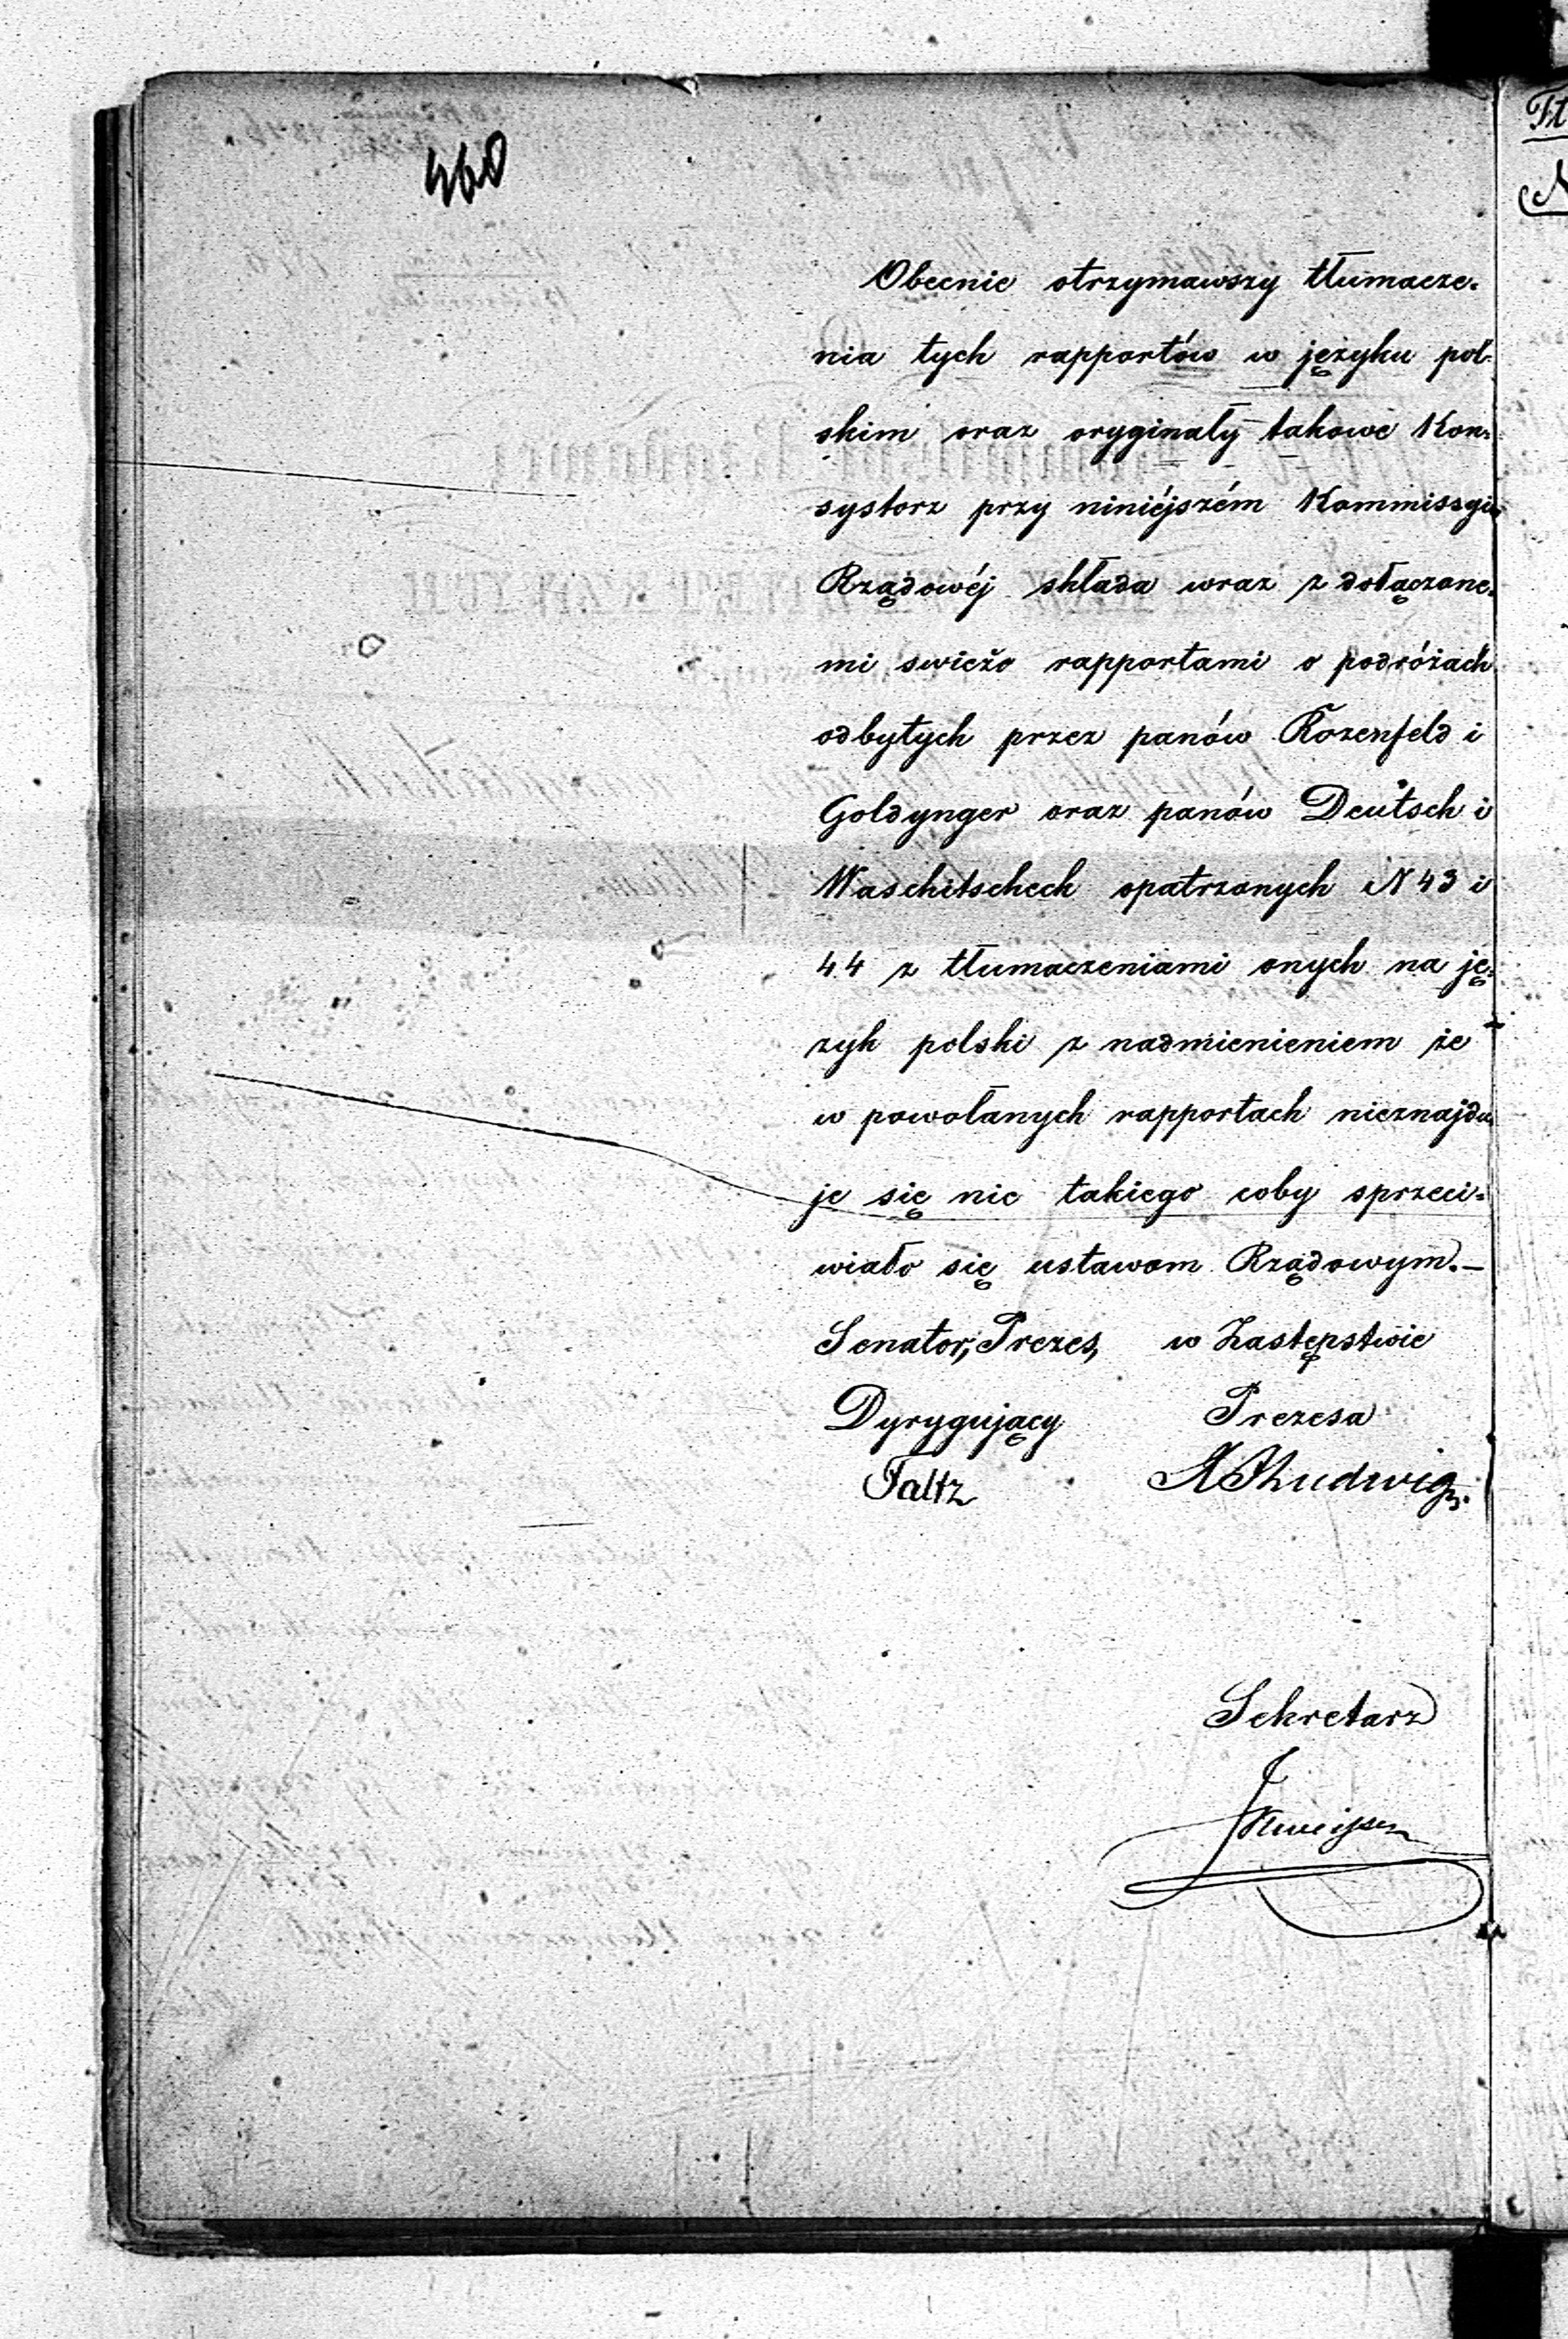 460
Obecnie otrzymawszy tłumacze-
nia tych rapportów w języku pol-
skim oraz oryginały takowe Kon-
systorz przy niniéjszém Kommissyi
Rządowéj składa wraz z dołączone-
mi swieżo rapportami o podróżach
odbytych przez panów Rozenfeld i
Goldynger oraz panów Deutsch i
Waschitscheck opatrzonych N 43 i
44 z tłumaczeniami onych na ję-
zyk polski z nadmienieniem że
w powołanych rapportach nieznajdu-
je się nic takiego coby sprzeci-
wiało się ustawom Rządowym.—
Senator, Prezes, w Zastępstwie
Dyrygujący Prezesa
Faltz Ludwig.
Sekretarz